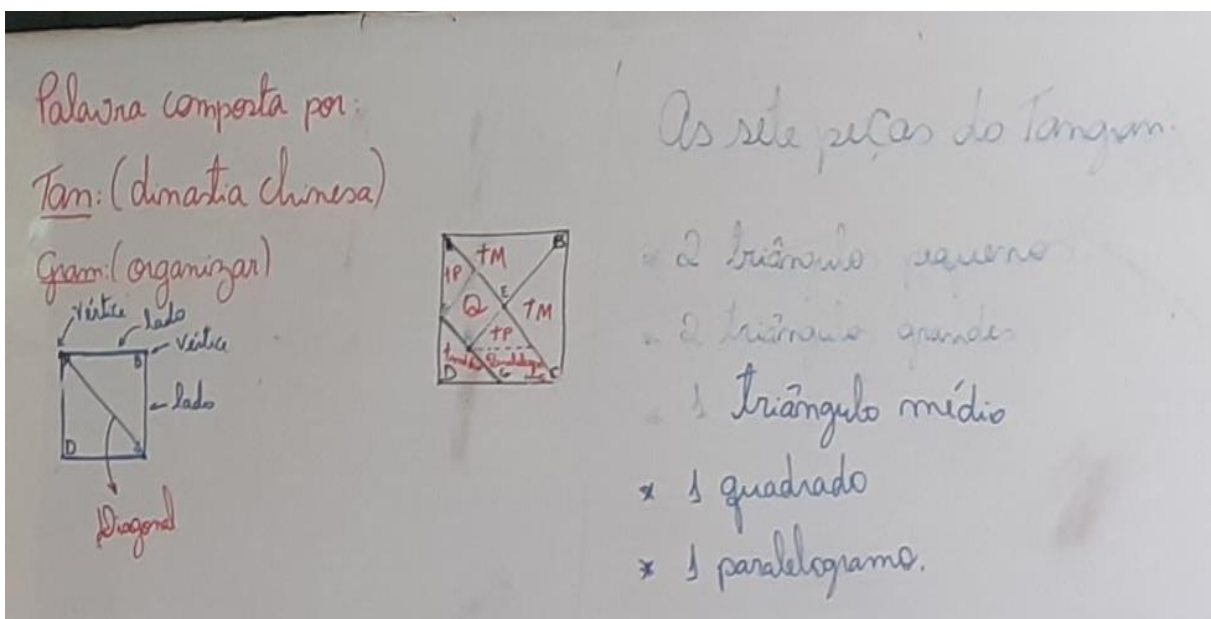 Palavra composta por:
Tan: (dinastia chinesa)
Gram: (organizar)
vértice
lado
Vértice
B
lado
D
Diagonal
B
TM
TP
Q
E
TM
TP
D
G
C
As sete peças do Tangram.
2 triângulo pequeno
2 triângulo grandes
1 triângulo médio
* 1 quadrado
* 1 paralelogramo.